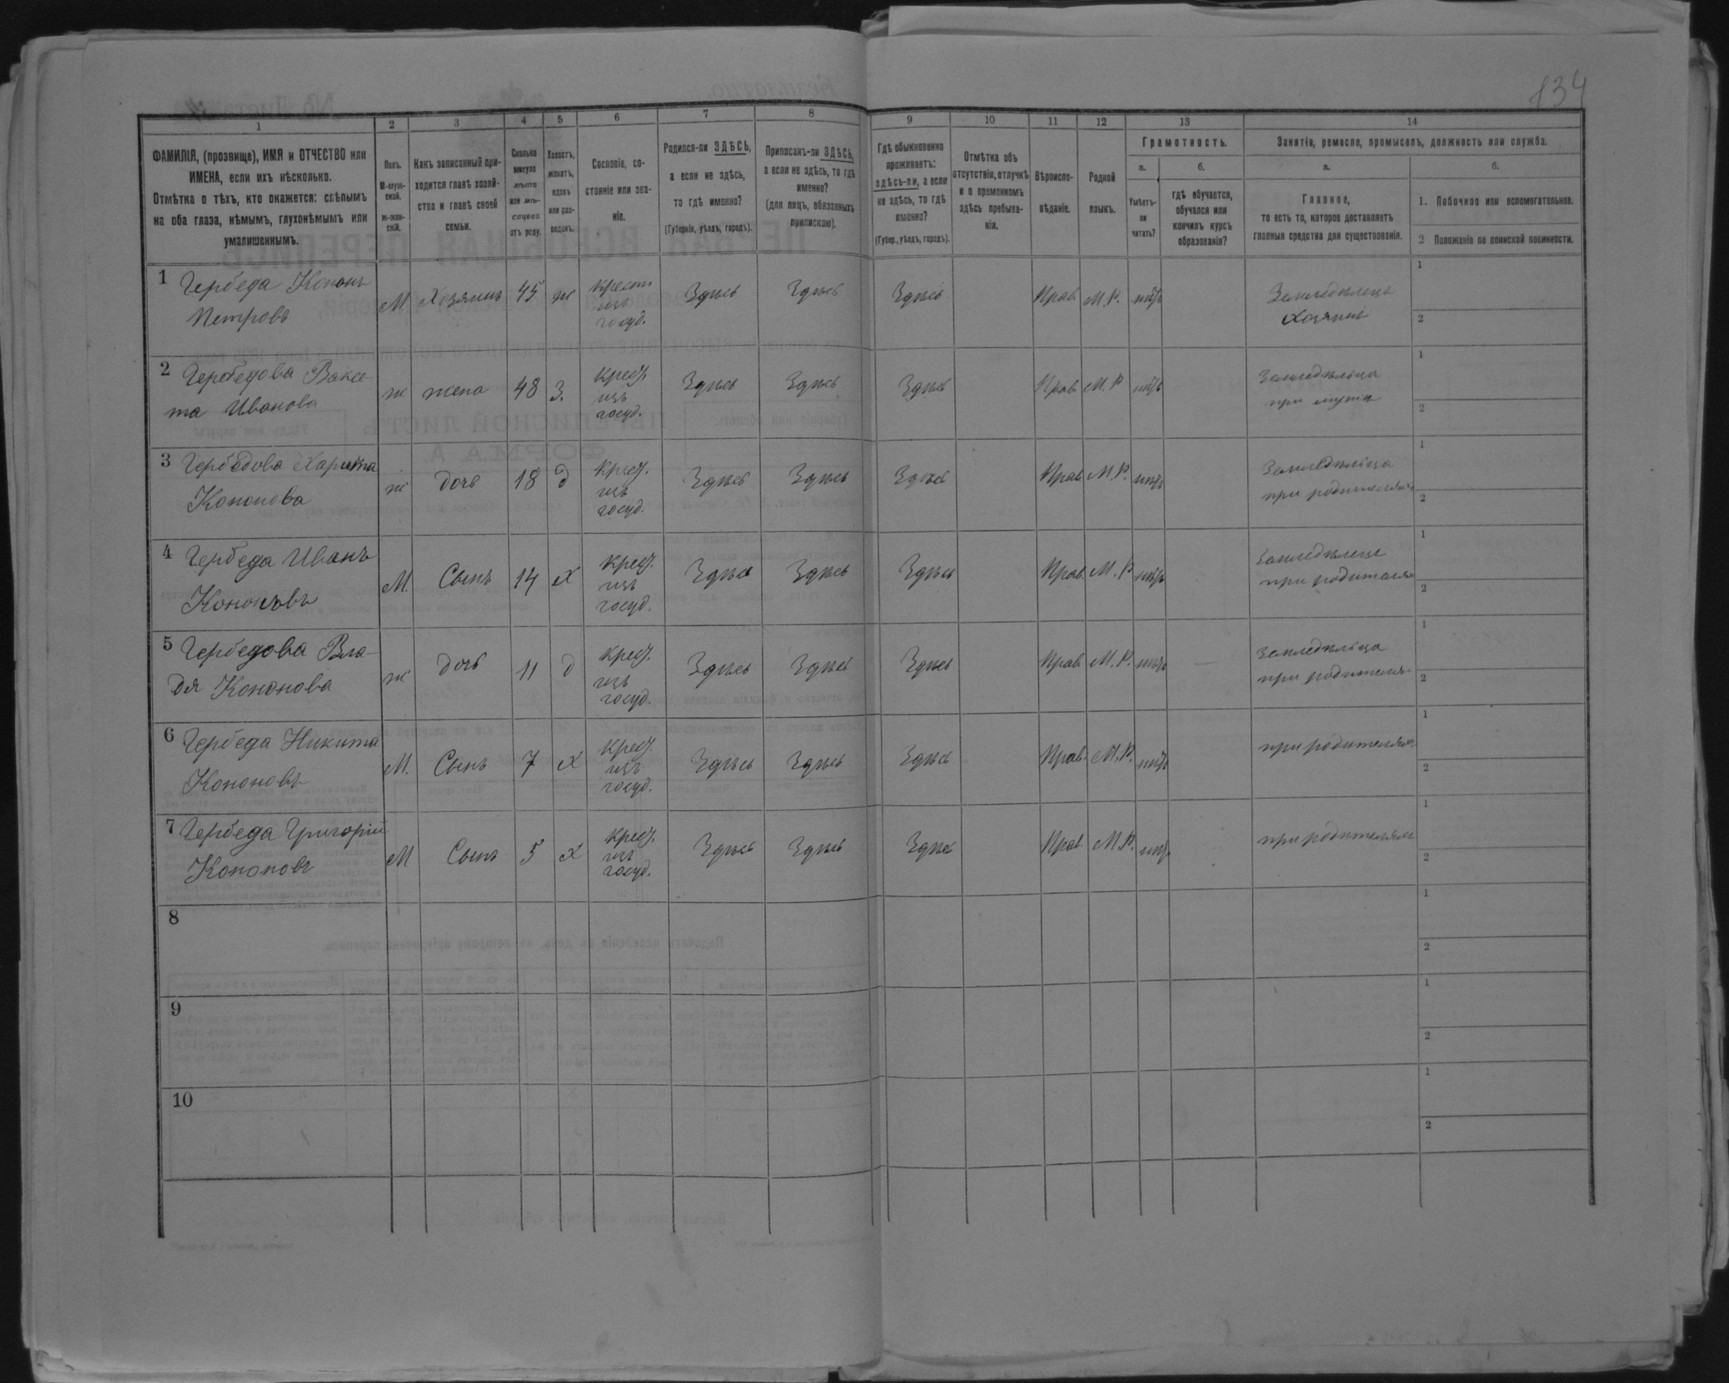 134
1 2 3 4 5 6 7 8 9 10 11 12 13 14
ФАМИЛІЯ, (прозвище), ИМЯ и ОТЧЕСТВО или
ИМЕНА, если ихъ нѣсколько.
Отмѣтка о тѣхъ, кто окажется: слѣпымъ
на оба глаза, нѣмымъ, глухонѣмымъ или
умалишеннымъ.
Полъ.
М-мужской.
ж-женскій.
Какъ записанный приходится главѣ хозяйства и главѣ своей семьи.
Сколько минуло лѣтъ или мѣсяцевъ отъ роду.
Холостъ, женатъ, вдовъ или разведенъ.
Сословіе, состояніе или званіе.
Родился-ли ЗДѢСЬ,
а если не здѣсь,
то гдѣ именно?
(Губернія, уѣздъ, городъ).
Приписанъ-ли ЗДѢСЬ,
а если не здѣсь, то гдѣ
именно?
(для лицъ, обязанныхъ
припискою).
Гдѣ обыкновенно
проживаетъ:
здѣсь-ли, а если
не здѣсь, то гдѣ
именно?
(Губер., уѣздъ, городъ).
Отмѣтка объ
отсутствіи, отлучкѣ
и о временномъ
здѣсь пребываніи.
Вѣроисповѣданіе.
Родной
языкъ.
Грамотность.
а.
Умѣетъ-ли
читать?
б.
гдѣ обучается,
обучался или
кончилъ курсъ
образованія?
Занятіе, ремесло, промыселъ, должность или служба.
а.
Главное,
то есть то, которое доставляетъ
главныя средства для существованія.
б.
1. Побочное или вспомогательное.
2 Положеніе по воинской повинности.
1 Гербеда Кононъ
Петровъ М Хозяинъ 45 ж Крест. изъ госуд. Здѣсь Здѣсь Здѣсь Прав. М.Р. нѣтъ Земледѣлецъ хозяинъ 1 2
2 Гербедова
Иванова ж жена 48 З. Крест. изъ госуд. Здѣсь Здѣсь Здѣсь Прав. М.Р. нѣтъ Земледѣлица при мужѣ 1 2
3 Гербедова
Кононова ж дочь 18 д Крест. изъ госуд. Здѣсь Здѣсь Здѣсь Прав. М.Р. нѣтъ Земледѣлица при родителяхъ 1 2
4 Гербеда Иванъ
Кононовъ М. Сынъ 14 Х Крест. изъ госуд. Здѣсь Здѣсь Здѣсь Прав. М.Р. нѣтъ Земледѣлецъ при родителяхъ 1 2
5 Гербедова
Кононова ж дочь 11 д Крест. изъ госуд. Здѣсь Здѣсь Здѣсь Прав. М.Р. нѣтъ Земледѣлица при родителяхъ 1 2
6 Гербеда Никита
Кононовъ М. Сынъ 7 Х Крест. изъ госуд. Здѣсь Здѣсь Здѣсь Прав. М.Р. нѣтъ при родителяхъ 1 2
7 Гербеда Григорій
Кононовъ М Сынъ 5 Х Крест. изъ госуд. Здѣсь Здѣсь Здѣсь Прав. М.Р. нѣтъ при родителяхъ 1 2
8 1 2
9 1 2
10 1 2